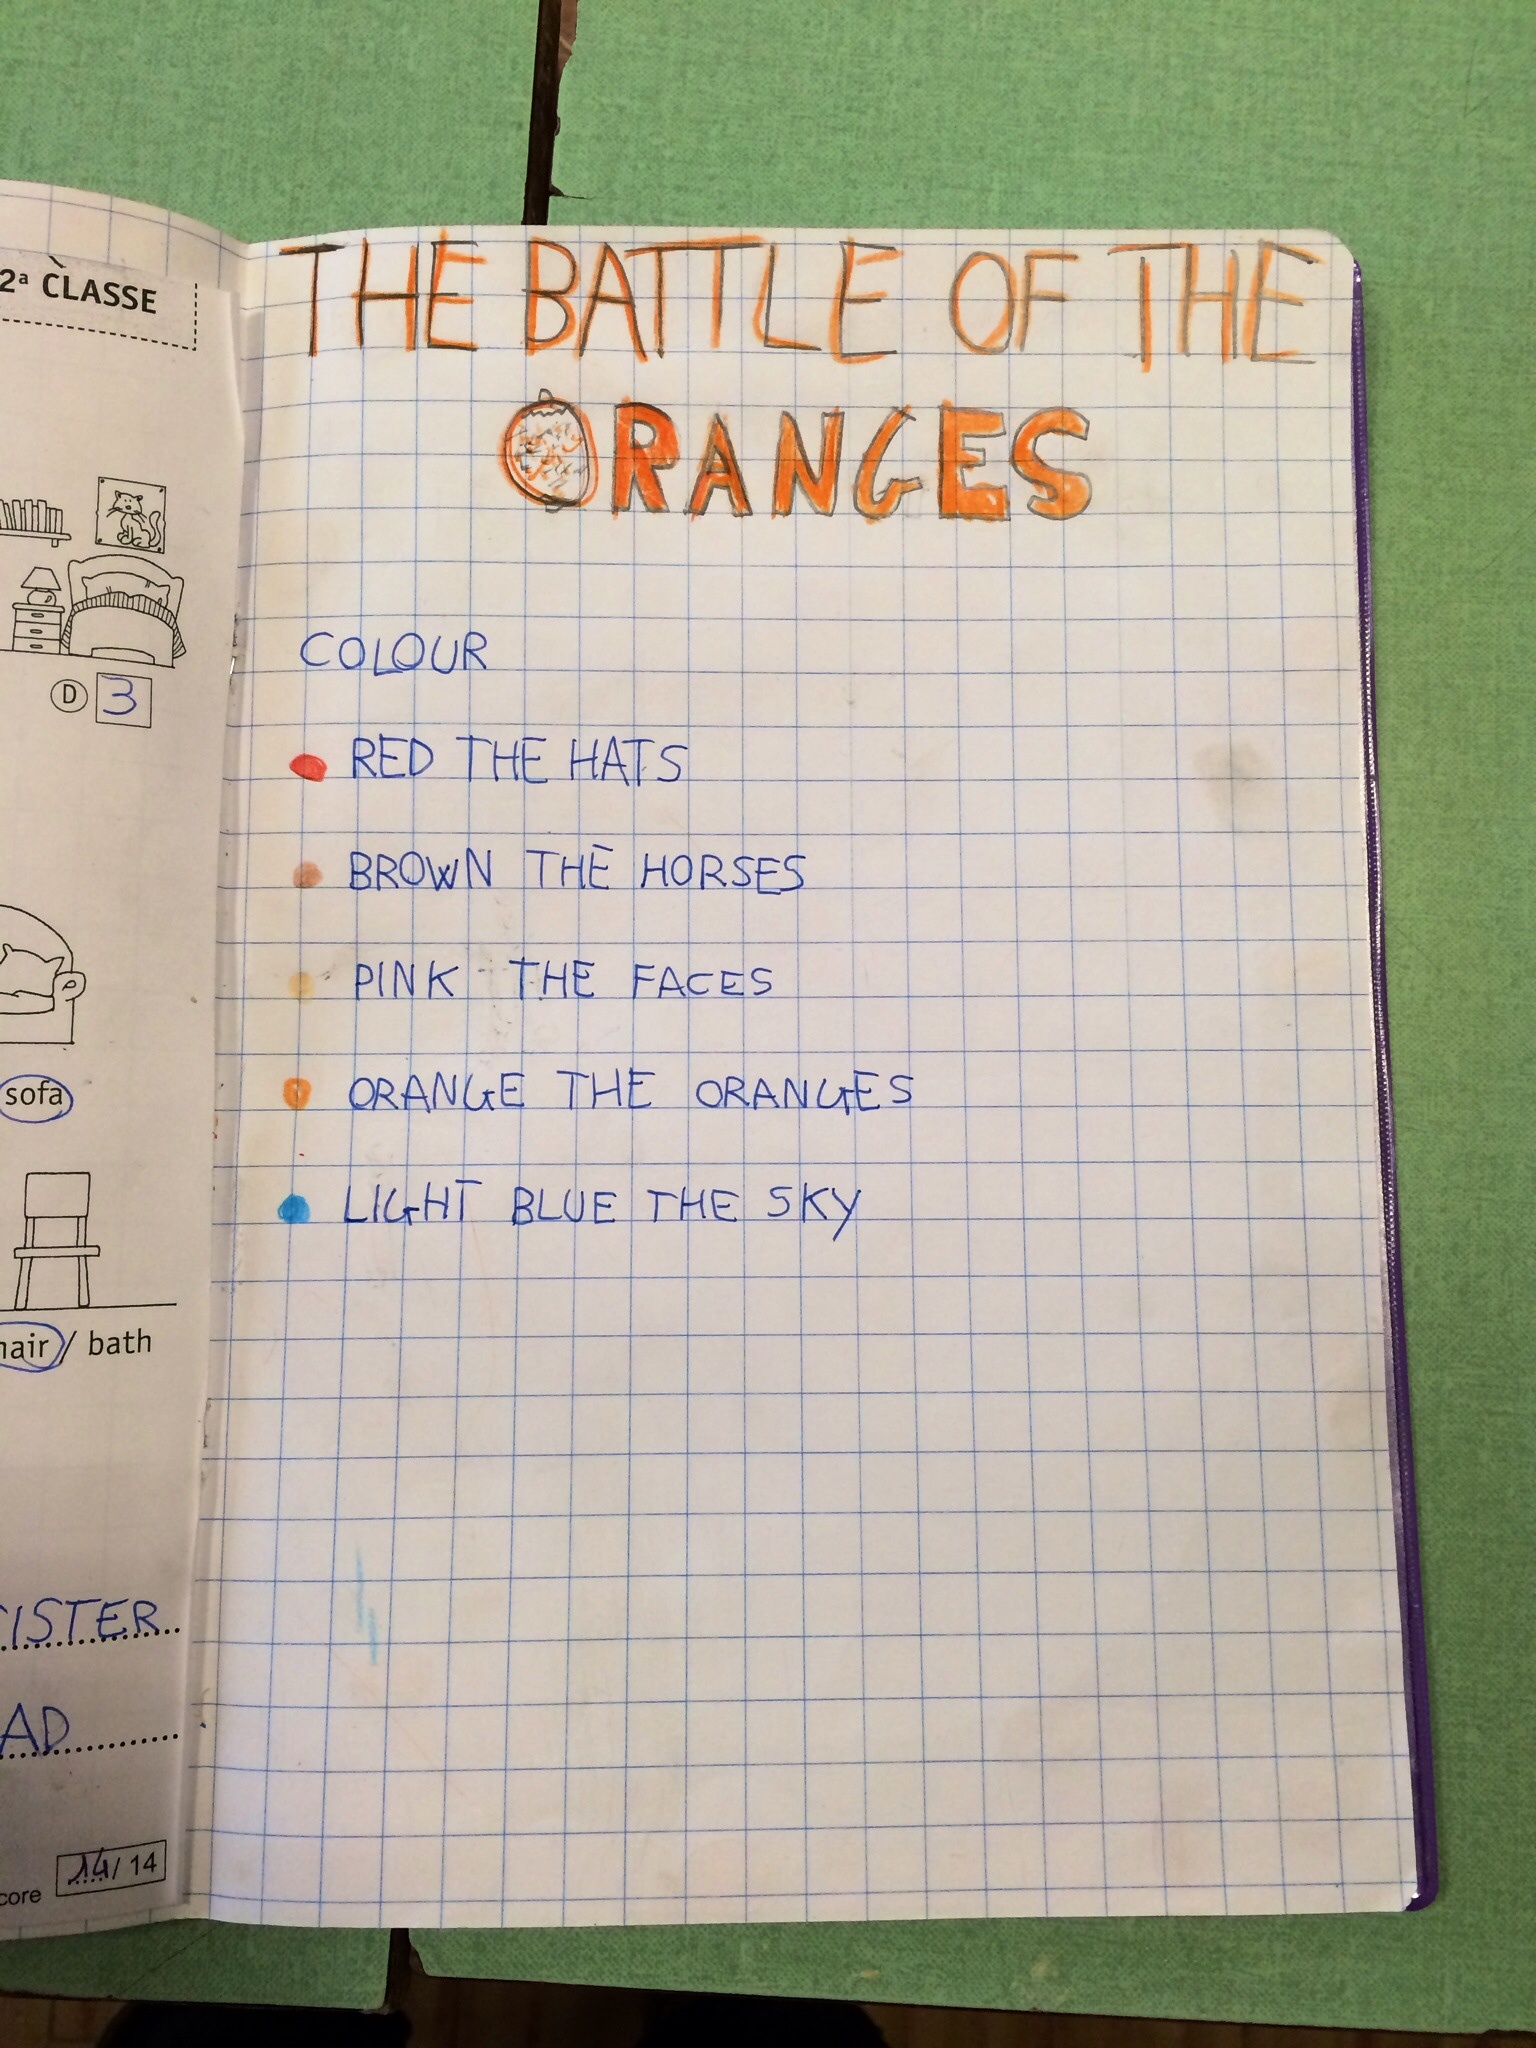 2ª CLASSE
D 3
sofa
/ bath
14/14
THE BATTLE OF THE
ORANGES
COLOUR
RED THE HATS
BROWN THE HORSES
PINK THE FACES
ORANGE THE ORANGES
LIGHT BLUE THE SKY